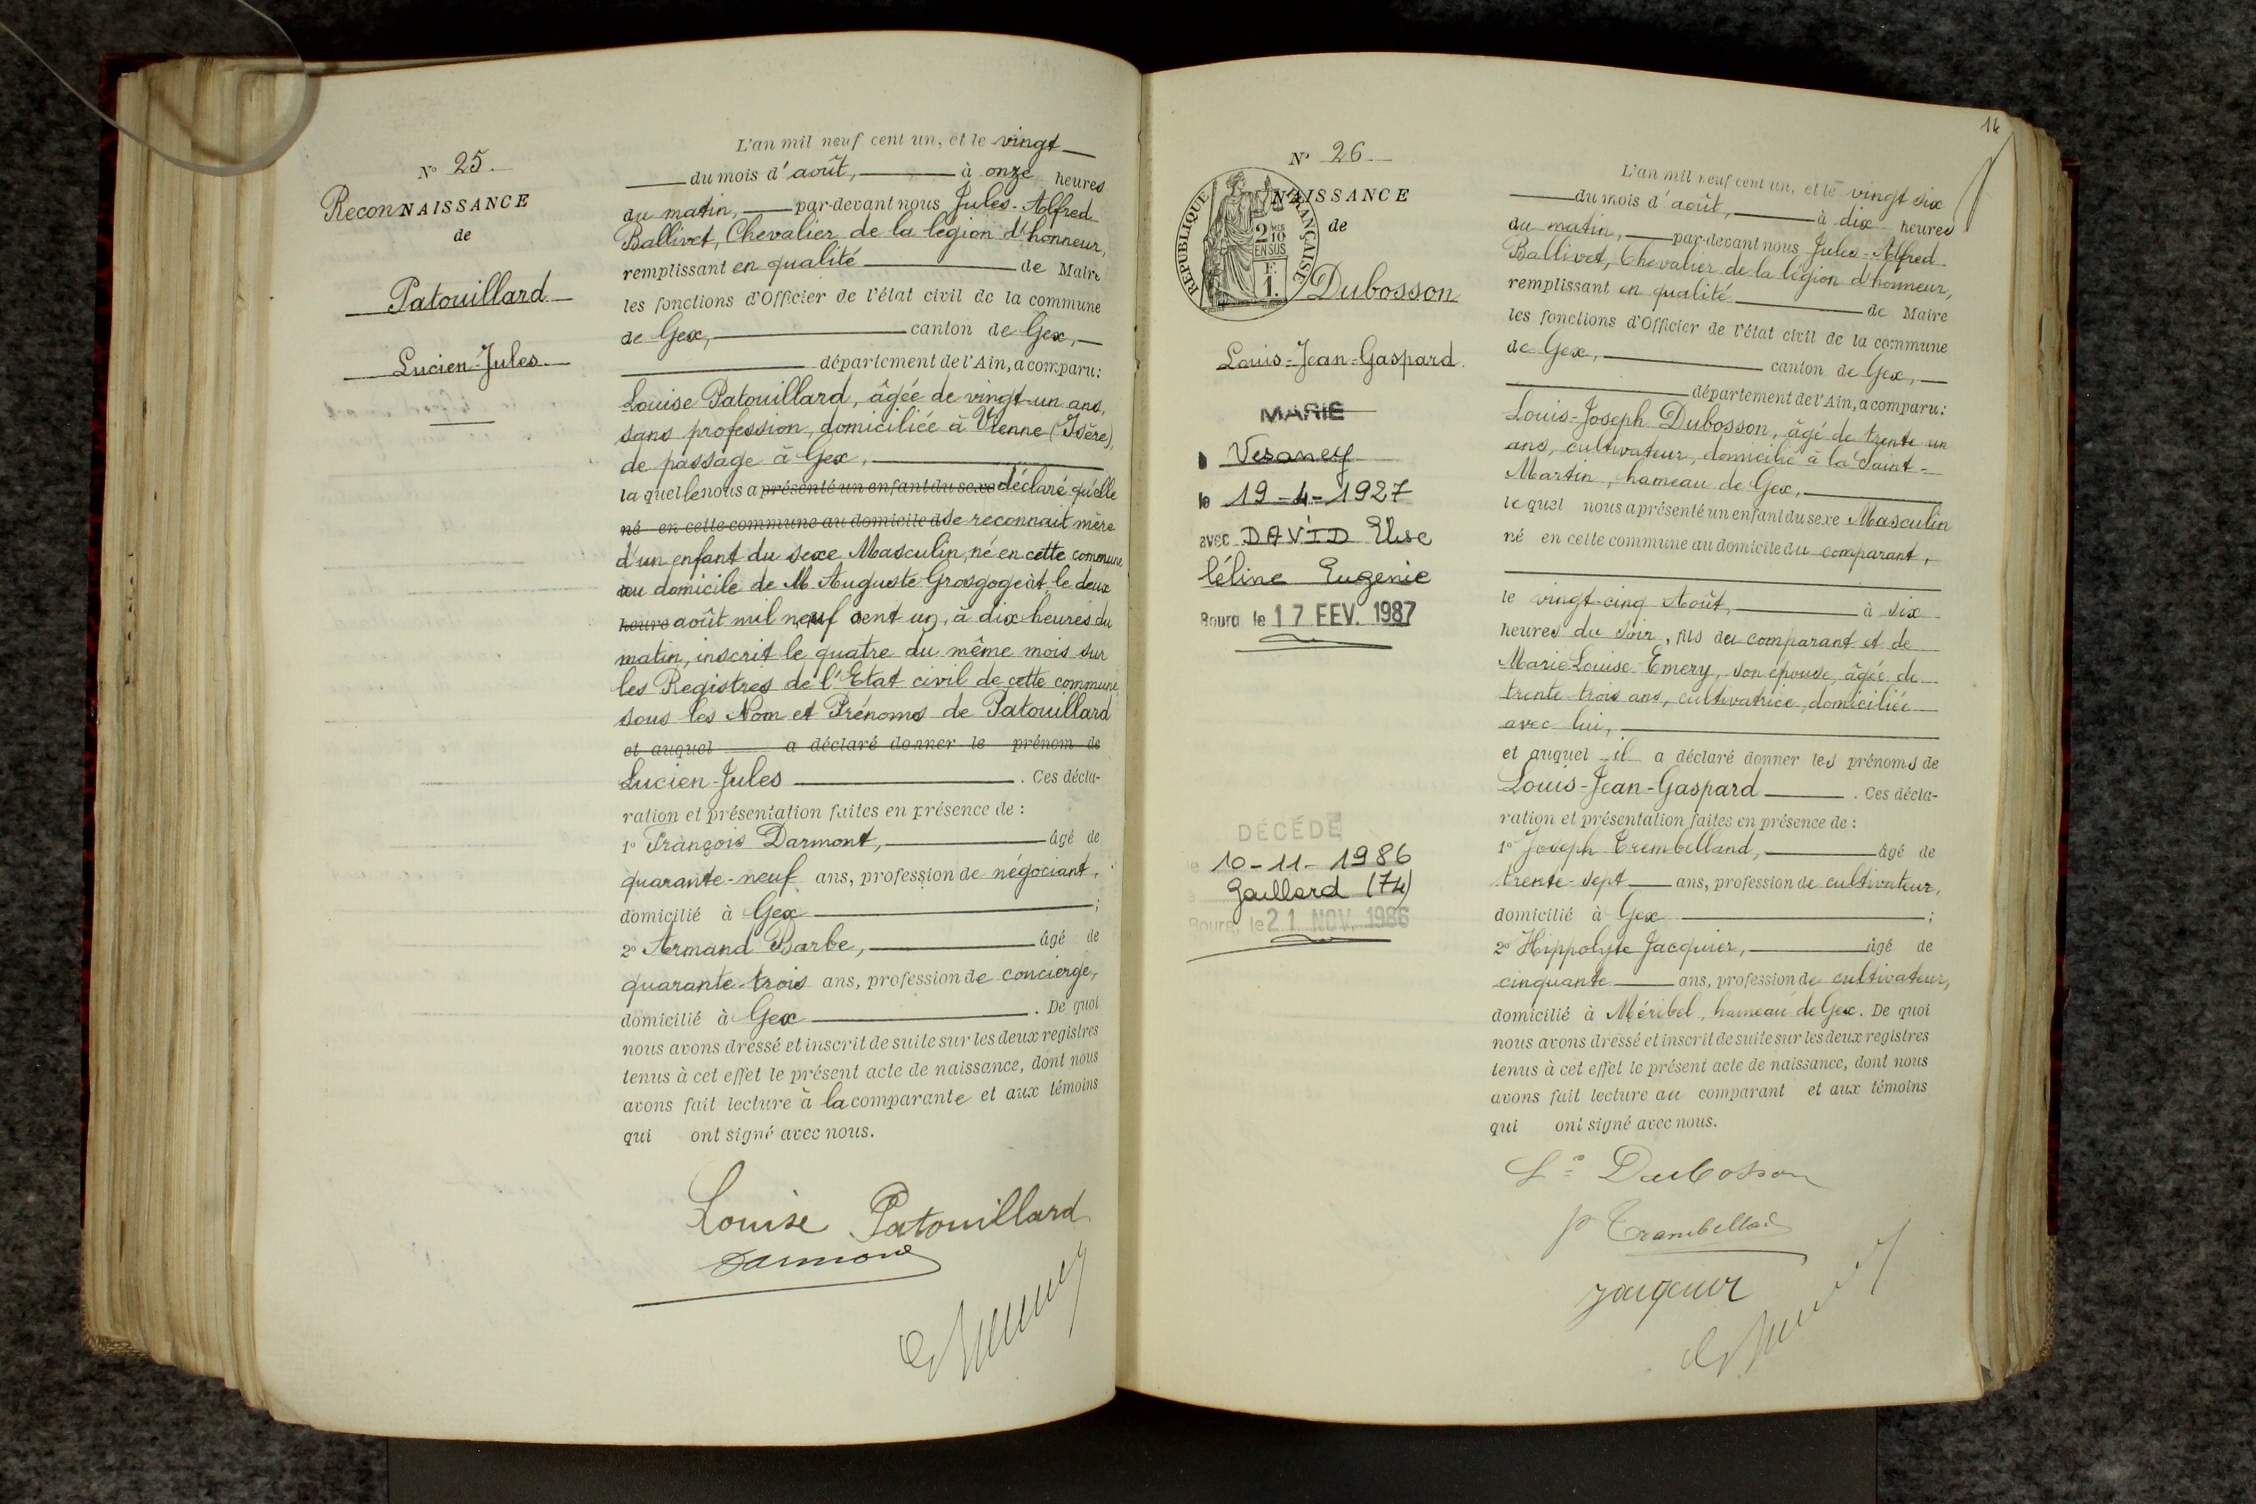 N° 25.
ReconNAISSANCE
de
Patouillard
Lucien-Jules
L'an mil neuf cent un, et le vingt
du mois d'août, à onze heures
du matin, par-devant nous Jules-Alfred
Ballivet, Chevalier de la légion d'honneur,
remplissant en qualité de Maire
les fonctions d'Officier de l'état civil de la commune
de Gex, canton de Gex,
département de l'Ain, a comparu:
Louise Patouillard, âgée de vingt-un ans,
sans profession, domiciliée à Vienne (Isère),
de passage à Gex,
laquelle nous a présenté un enfant du sexe déclaré qu'elle
né en cette commune au domicile d se reconnait mère
d'un enfant du sexe Masculin, né en cette commune
au domicile de M Auguste Grosgogeat, le deux
heure août mil neuf cent un, à dix heures du
matin, inscrit le quatre du même mois sur
les Registres de l'Etat civil de cette commune,
sous les Nom et Prénoms de Patouillard
et auquel a déclaré donner le prénom de
Lucien-Jules . Ces décla-
ration et présentation faites en présence de :
1° François Darmont, âgé de
quarante-neuf ans, profession de négociant,
domicilié à Gex ;
2° Armand Barbe, âgé de
quarante-trois ans, profession de concierge,
domicilié à Gex . De quoi
nous avons dressé et inscrit de suite sur les deux registres
tenus à cet effet le présent acte de naissance, dont nous
avons fait lecture à la comparante et aux témoins
qui ont signé avec nous.
Louise Patouillard
Darmont
N° 26
NAISSANCE
de
RÉPUBLIQUE FRANÇAISE
2 10
EN SUS
F.
1.
Dubosson
Louis-Jean-Gaspard
MARIÉ
Vesancy
le 19-4-1927
avec DAVID Elise
Céline Eugenie
Bourg le 17 FEV. 1987
DÉCÉDÉ
le 10-11-1986
à Gaillard (74)
Bourg, le 21 NOV. 1986
14
L'an mil neuf cent un, et le vingt six
du mois d'août, à dix heures
du matin, par-devant nous Jules-Alfred
Ballivet, Chevalier de la légion d'honneur,
remplissant en qualité de Maire
les fonctions d'Officier de l'état civil de la commune
de Gex, canton de Gex,
département de l'Ain, a comparu:
Louis-Joseph Dubosson, âgé de trente un
ans, cultivateur, domicilié à la Saint-
Martin, hameau de Gex,
lequel nous a présenté un enfant du sexe Masculin
né en cette commune au domicile du comparant,
le vingt-cinq Août, à six
heures du soir, fils du comparant et de
Marie Louise Emery, son épouse, âgée de
trente trois ans, cultivatrice, domiciliée
avec lui,
et auquel il a déclaré donner les prénoms de
Louis-Jean-Gaspard . Ces décla-
ration et présentation faites en présence de :
1° Joseph Trembelland, âgé de
trente-sept ans, profession de cultivateur,
domicilié à Gex ;
2° Hippolyte Jacquier, âgé de
cinquante ans, profession de cultivateur,
domicilié à Méribel, hameau de Gex. De quoi
nous avons dressé et inscrit de suite sur les deux registres
tenus à cet effet le présent acte de naissance, dont nous
avons fait lecture au comparant et aux témoins
qui ont signé avec nous.
Ls Dubosson
Jacquier